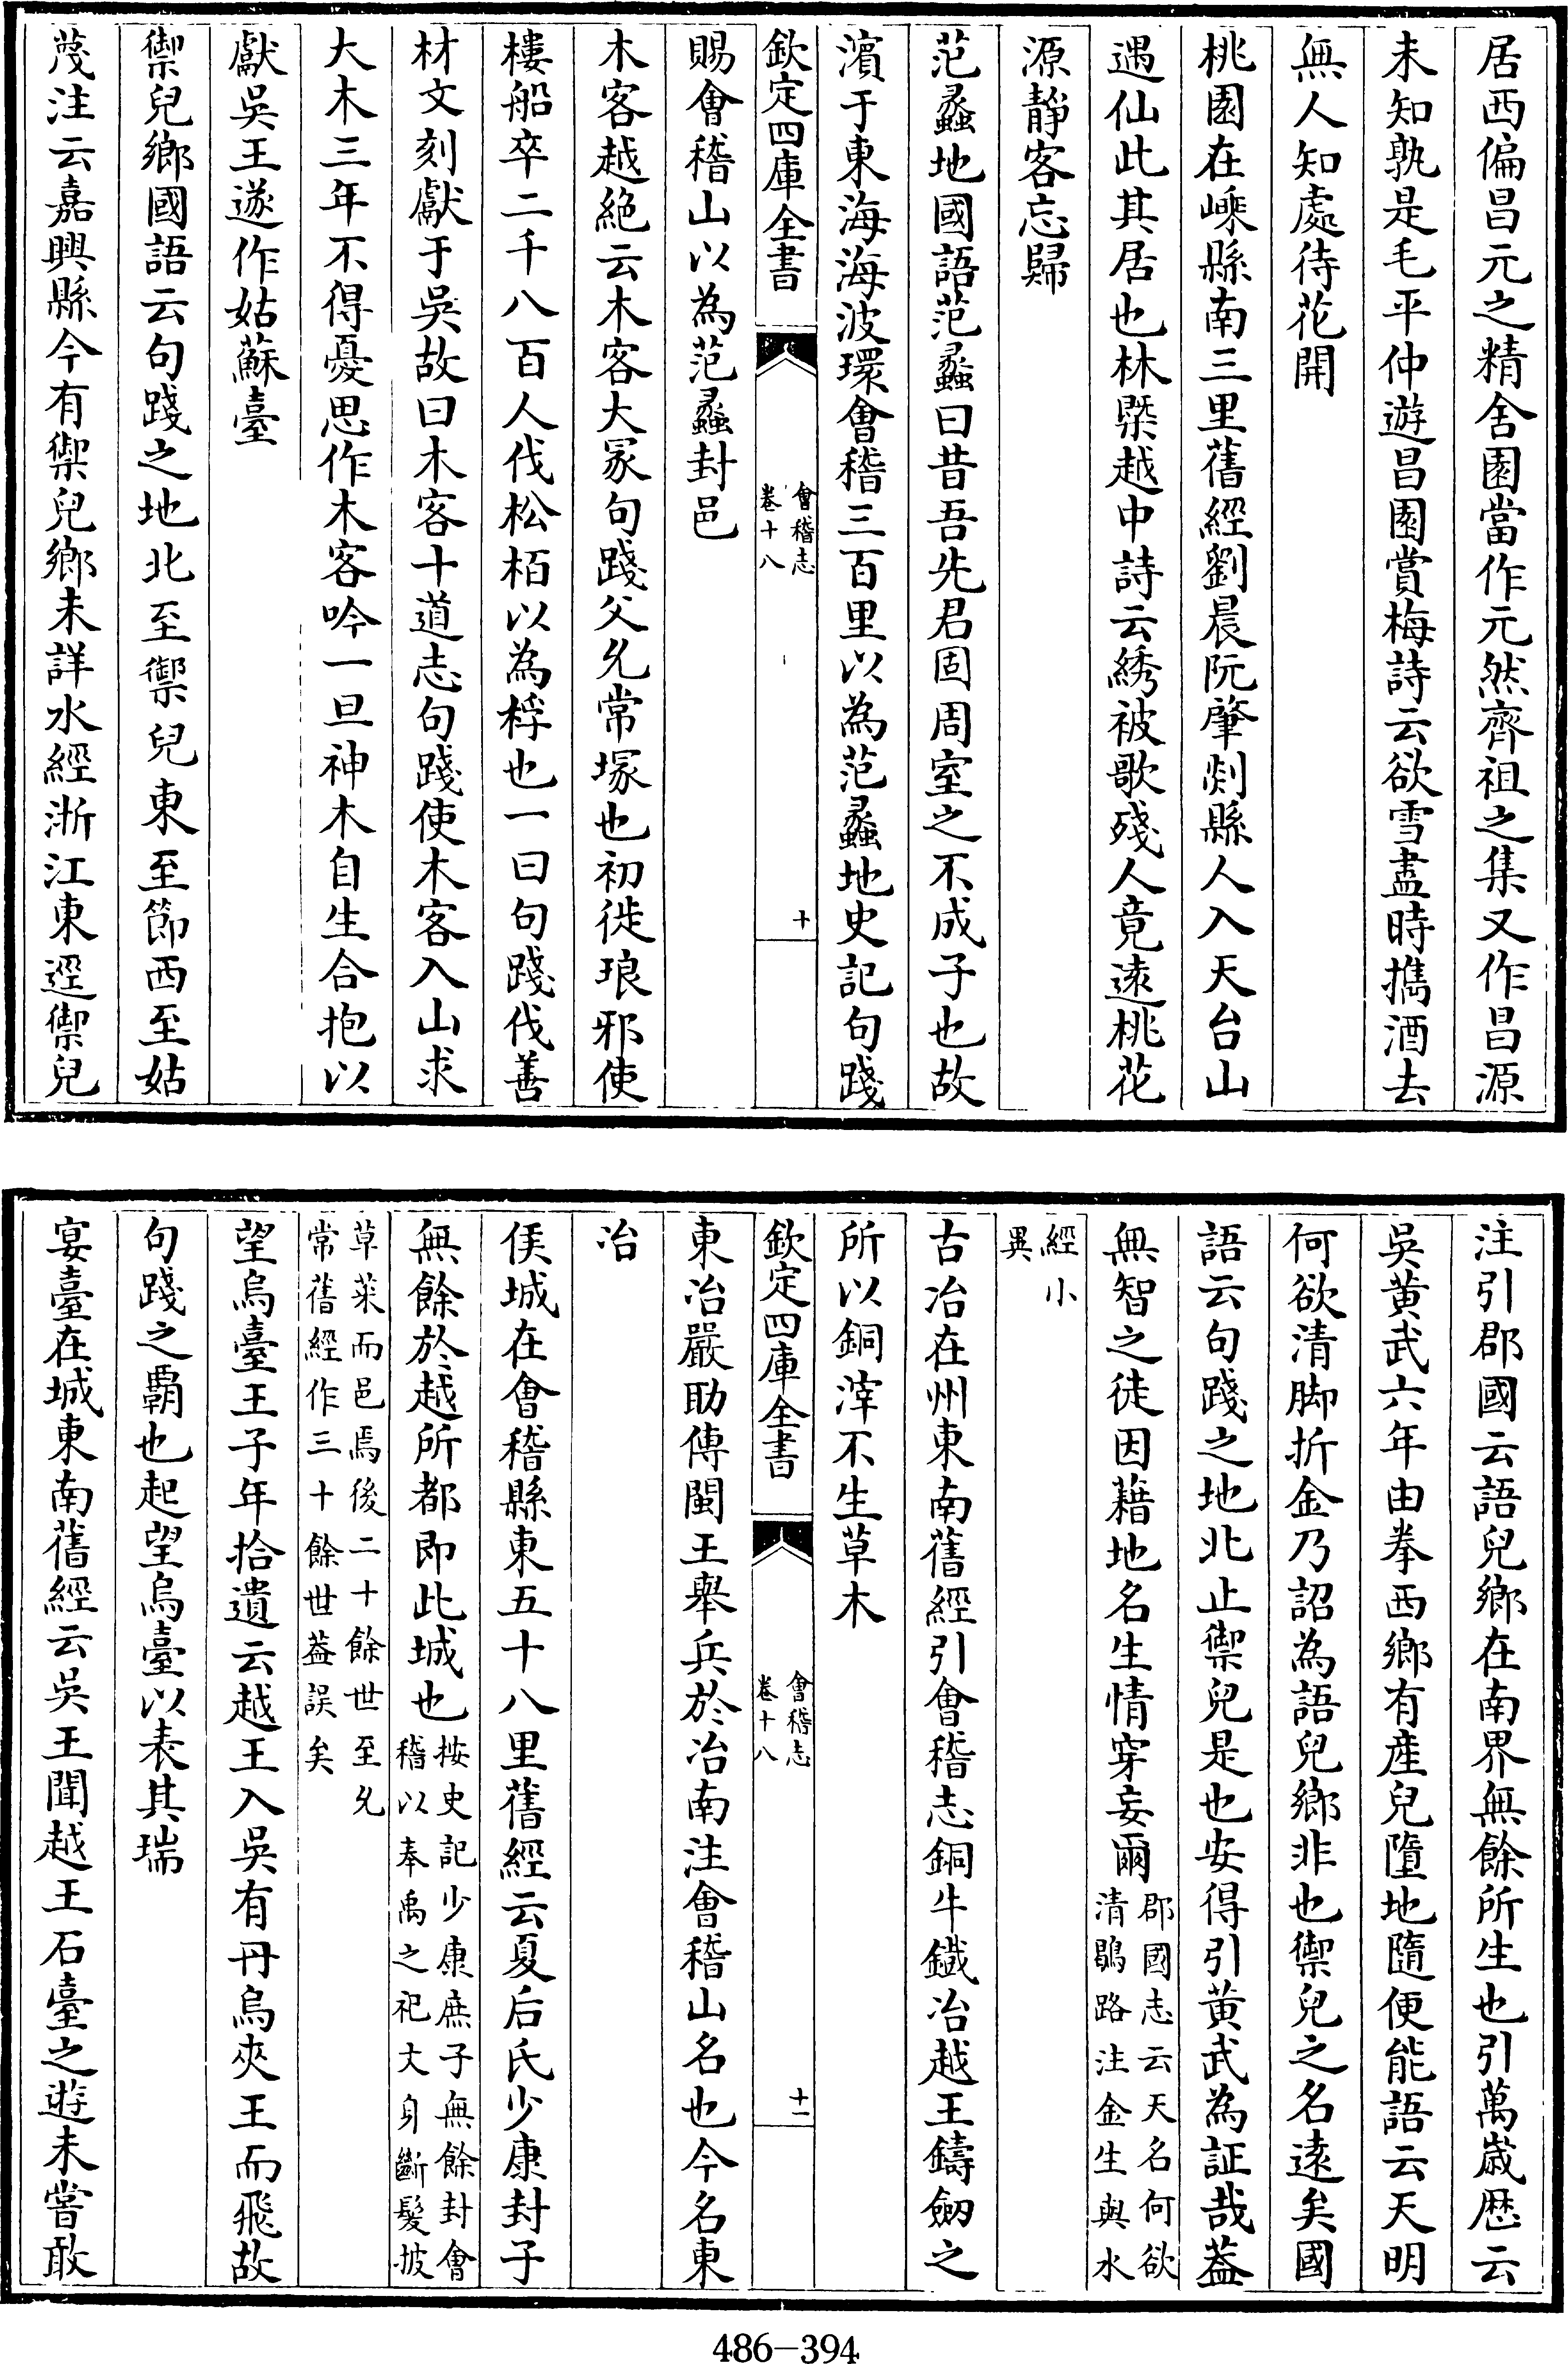 居西偏昌元之精舍園當作元然齊祖之集又作昌源
未知孰是毛平仲遊昌園賞梅詩云欲雪盡時攜酒去
無人知處待花開
桃園在嵊縣南三里舊經劉晨阮肇剡縣人入天台山
遇仙此其居也林槩越中詩云綉被歌殘人竟遠桃花
源靜客忘歸
范蠡地國語范蠡曰昔吾先君固周室之不成子也故
濱于東海海波環會稽三百里以為范蠡地史記句踐
欽定四庫全書
會稽志
卷十八
十
賜會稽山以為范蠡封邑
木客越絶云木客大冢句踐父允常塚也初徙琅邪使
樓船卒二千八百人伐松栢以為桴也一曰句踐伐善
材文刻獻于吳故曰木客十道志句踐使木客入山求
大木三年不得憂思作木客吟一旦神木自生合抱以
獻吳王遂作姑蘇臺
禦兒鄉國語云句踐之地北至禦兒東至節西至姑
蔑注云嘉興縣今有禦兒鄉未詳水經浙江東逕禦兒
注引郡國云語兒鄉在南界無餘所生也引萬歲歴云
吳黄武六年由拳西鄉有產兒墮地隨便能語云天明
何欲清脚折金乃詔為語兒鄉非也禦兒之名遠矣國
語云句踐之地北止禦兒是也安得引黄武為証哉葢
無智之徒因藉地名生情穿妄爾
郡國志云天名何欲
清鵾路注金生與水
經小
異
古冶在州東南舊經引會稽志銅牛鐵冶越王鑄劒之
所以銅滓不生草木
欽定四庫全書
會稽志
卷十八
十一
東冶嚴助傳閩王舉兵於冶南注會稽山名也今名東
冶
侯城在會稽縣東五十八里舊經云夏后氏少康封子
無餘於越所都即此城也
按史記少康庶子無餘封會
稽以奉禹之祀文身斷髮披
草萊而邑焉後二十餘世至允
常舊經作三十餘世葢誤矣
望烏臺王子年拾遺云越王入吳有丹烏夾王而飛故
句踐之覇也起望烏臺以表其瑞
宴臺在城東南舊經云吳王聞越王石臺之遊未甞敢
486-394